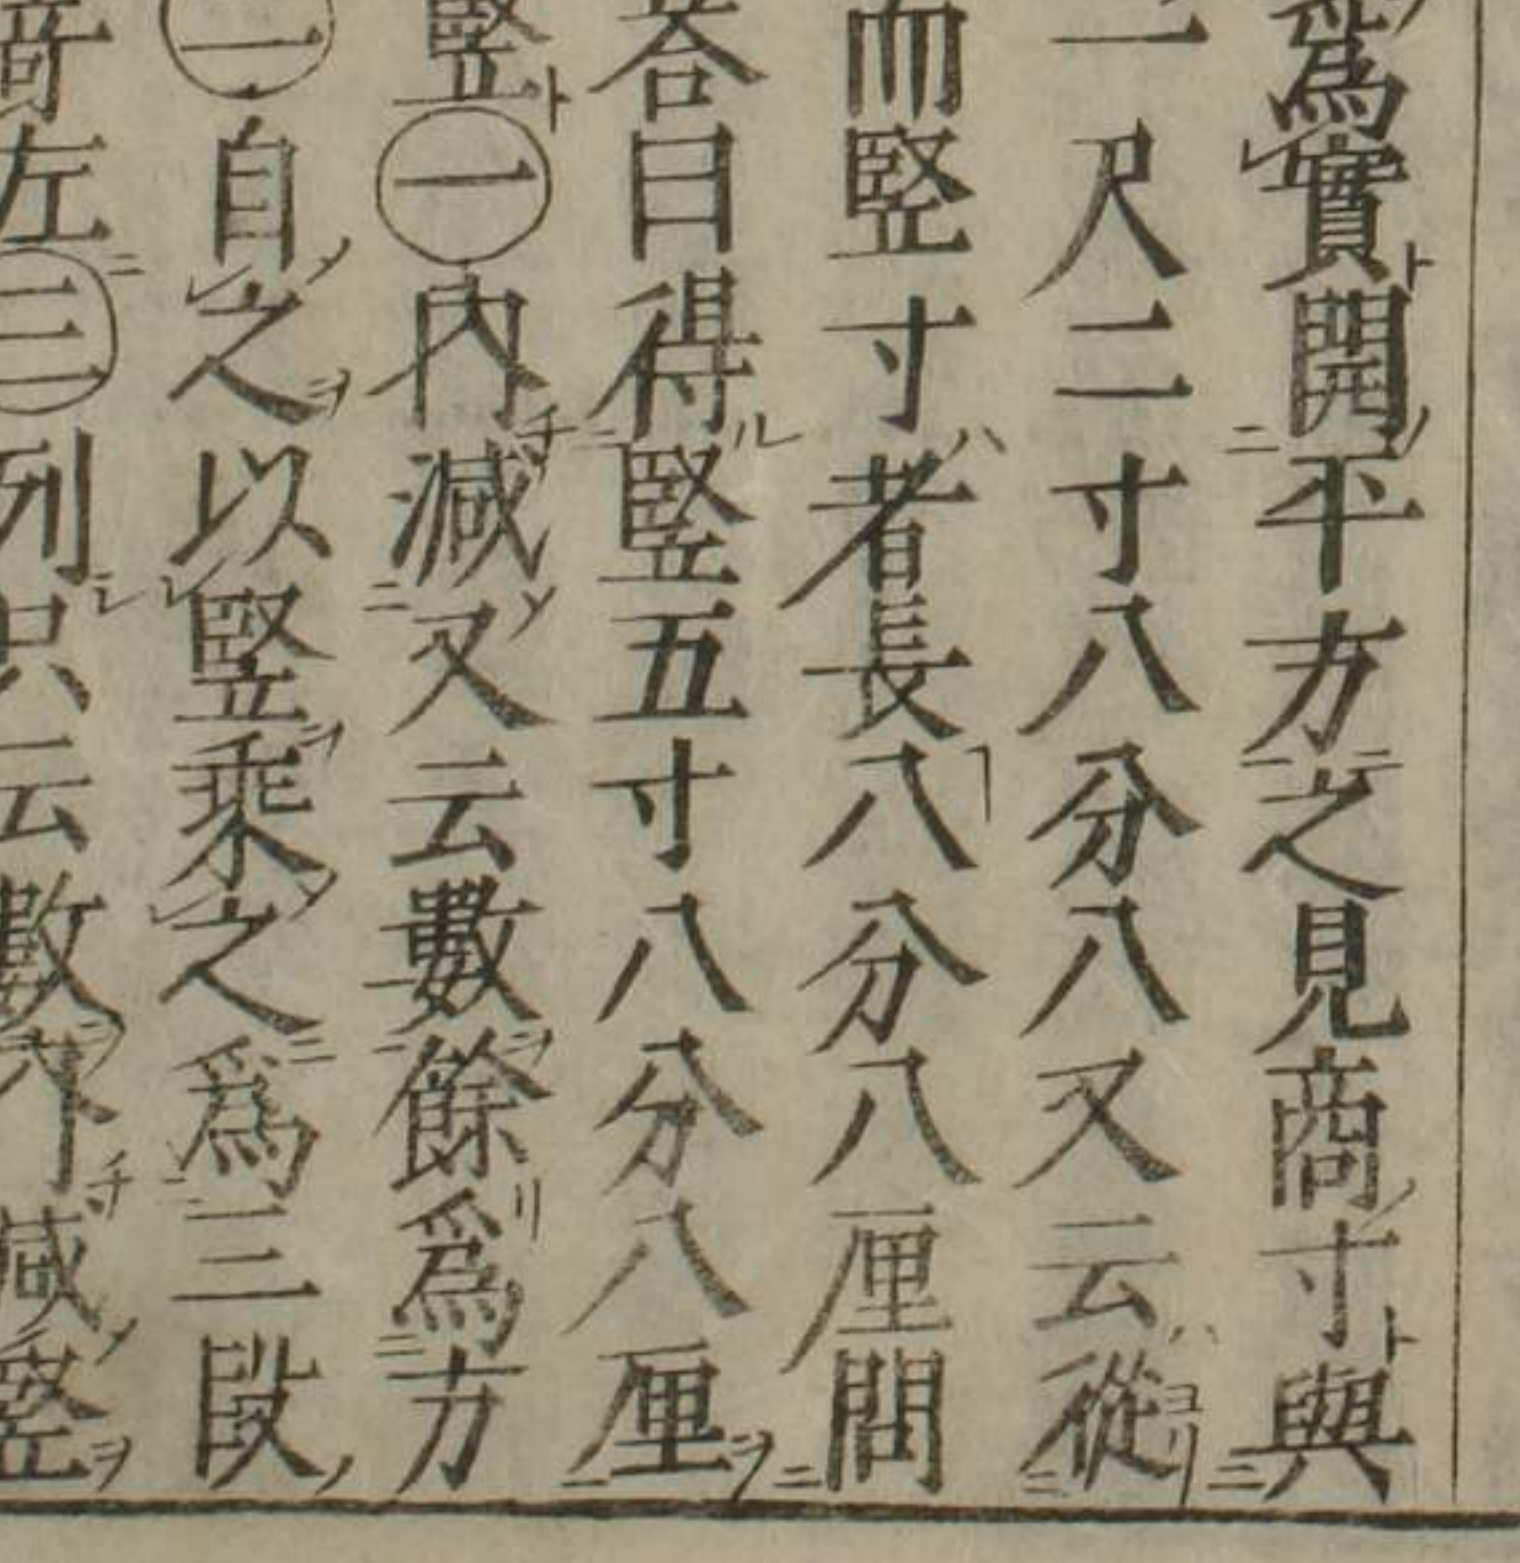 為實開平方之見商寸與
一尺二寸八分八又云從
而竪寸者長八分八厘問
荅曰得竪五寸八分八厘
竪㊀內減又云數餘爲方
㊁自之以竪乘之爲三段
寄左㊂列只云數內減竪